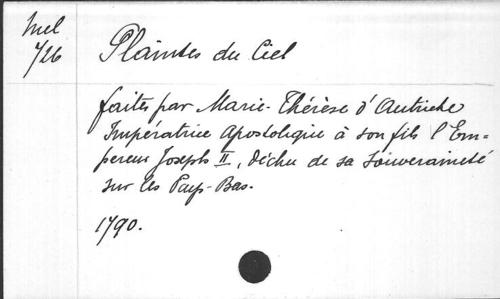 Mel
726
Plaintes du Ciel
faites par Marie-Thérèse d'Autriche
Impératrice Apostolique à son fils l'Em-
pereur Joseph II, déchu de sa Souveraineté
sur les Pays-Bas.
1790.